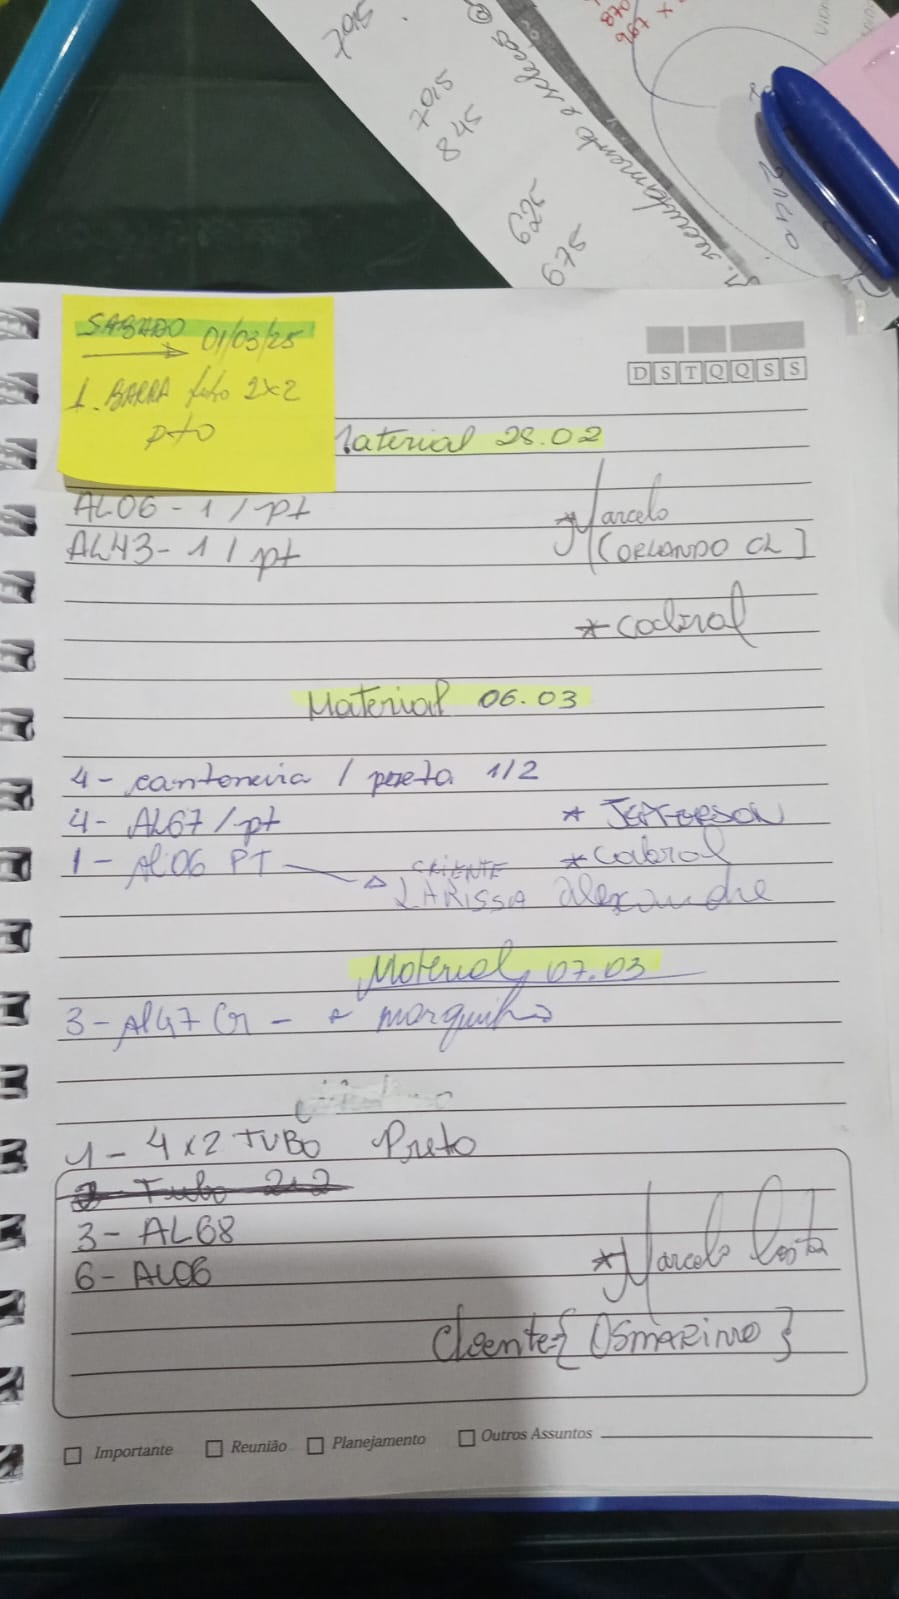 7015
7015
845
625
675
recrutamento e seleção @
SABADO 01/03/25
1. BARRA tubo 2x2
pto
D S T Q Q S S
Material 28.02
AL06 - 1 / pt
AL43 - 1 / pt
* Marcelo
[ORLANDO CL]
* Cabral
Material 06.03
4 - cantoneira / preta 1/2
4 - AL67 / pt * JEFFERSON
1 - AL06 PT * Cabral
CLIENTE
LARISSA Alexandre
Material 07.03
3 - AL47 Cr - * marquinho
1 - 4x2 TUBO Preto
2 - Tubo 2x2
3 - AL68
6 - AL06
* Marcelo Costa
Cliente { OSMARINO }
Importante Reunião Planejamento Outros Assuntos